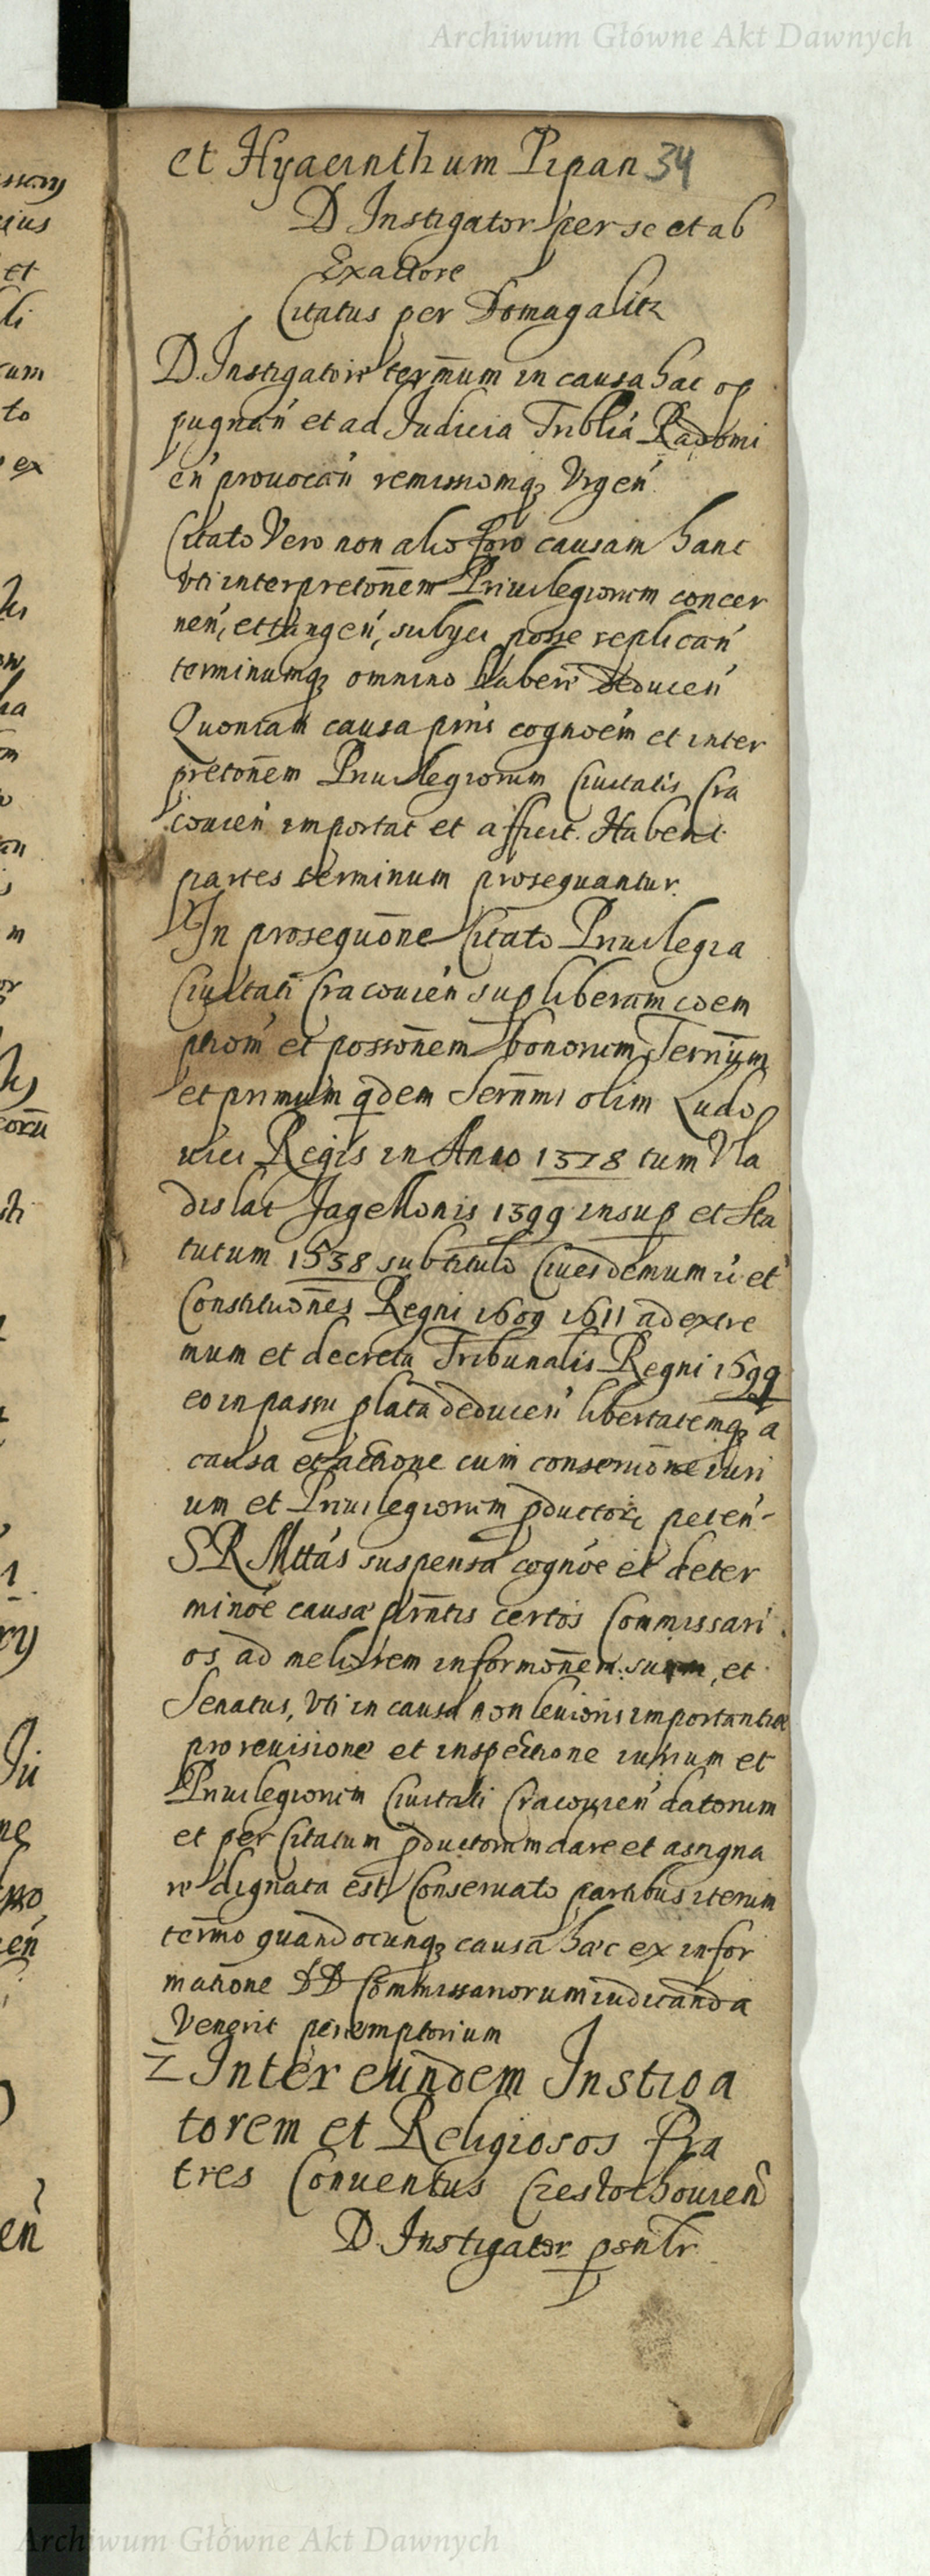 Archiwum Główne Akt Dawnych
et Hyacinthum Pipan 34
D Instigator per se et ab
Exactore
Citatus per Domagalitz
D. Instigatore termnum in causa hac op
pugnan et ad Judicia Triblia Radomi
en prouocan remissionemq Vrgen
Citato Vero non alio foro causam hanc
vti interpretonem Priuilegiorum concer
nen, et tangen, subyci posse replican
terminumq omnino habere deducen
Quoniam causa prns cognoem et inter
pretonem Priuilegiorum Ciuitatis Cra
couien importat et afficit. Habent
partes terminum prosequantur.
In prosequone Citato Priuilegia
Ciuitati Cracouien sup liberam coem
ptiom et possonem bonorum Terrnm
et primum qdem Sernmi olim Ludo
uici Regis in Anno 1378 tum Vla
dislai Jagellonis 1399 insup et Sta
tutum 1538 sub titulo Ciues demum et
Constituones Regni 1609 1611 ad extre
mum et decreta Tribunalis Regni 1699
eo in passu plata deducen libertatemq a
causa et actione cum conseruone iuri
um et Priuilegiorum pductor peten
S R Mttas suspensa cognoe et deter
minoe causæ prntis certos Commissari
os ad meliorem informonem suam, et
Senatus, vti in causa non leuioris importantiæ
pro reuisione et inspectione iurium et
Priuilegiorum Ciuitati Cracouien datorum
et per Citatum pductorum dare et assigna
re dignata est, Conseruato partibus iterum
termo quandocunq causa hæc ex infor
matione DD Commissariorum iudicanda
Venerit peremptorium
Inter eundem Instiga
torem et Religiosos Fra
tres Conuentus Czestochouien
D. Instigator psnlr
Archiwum Główne Akt Dawnych